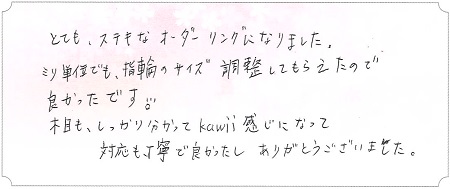 とても、ステキな オーダー リングになりました。
ミリ単位でも、指輪のサイズ 調整してもらえたので
良かったです!!
木目も、しっかり分かって kawii 感じになって
対応も丁寧で良かったし ありがとうございました。